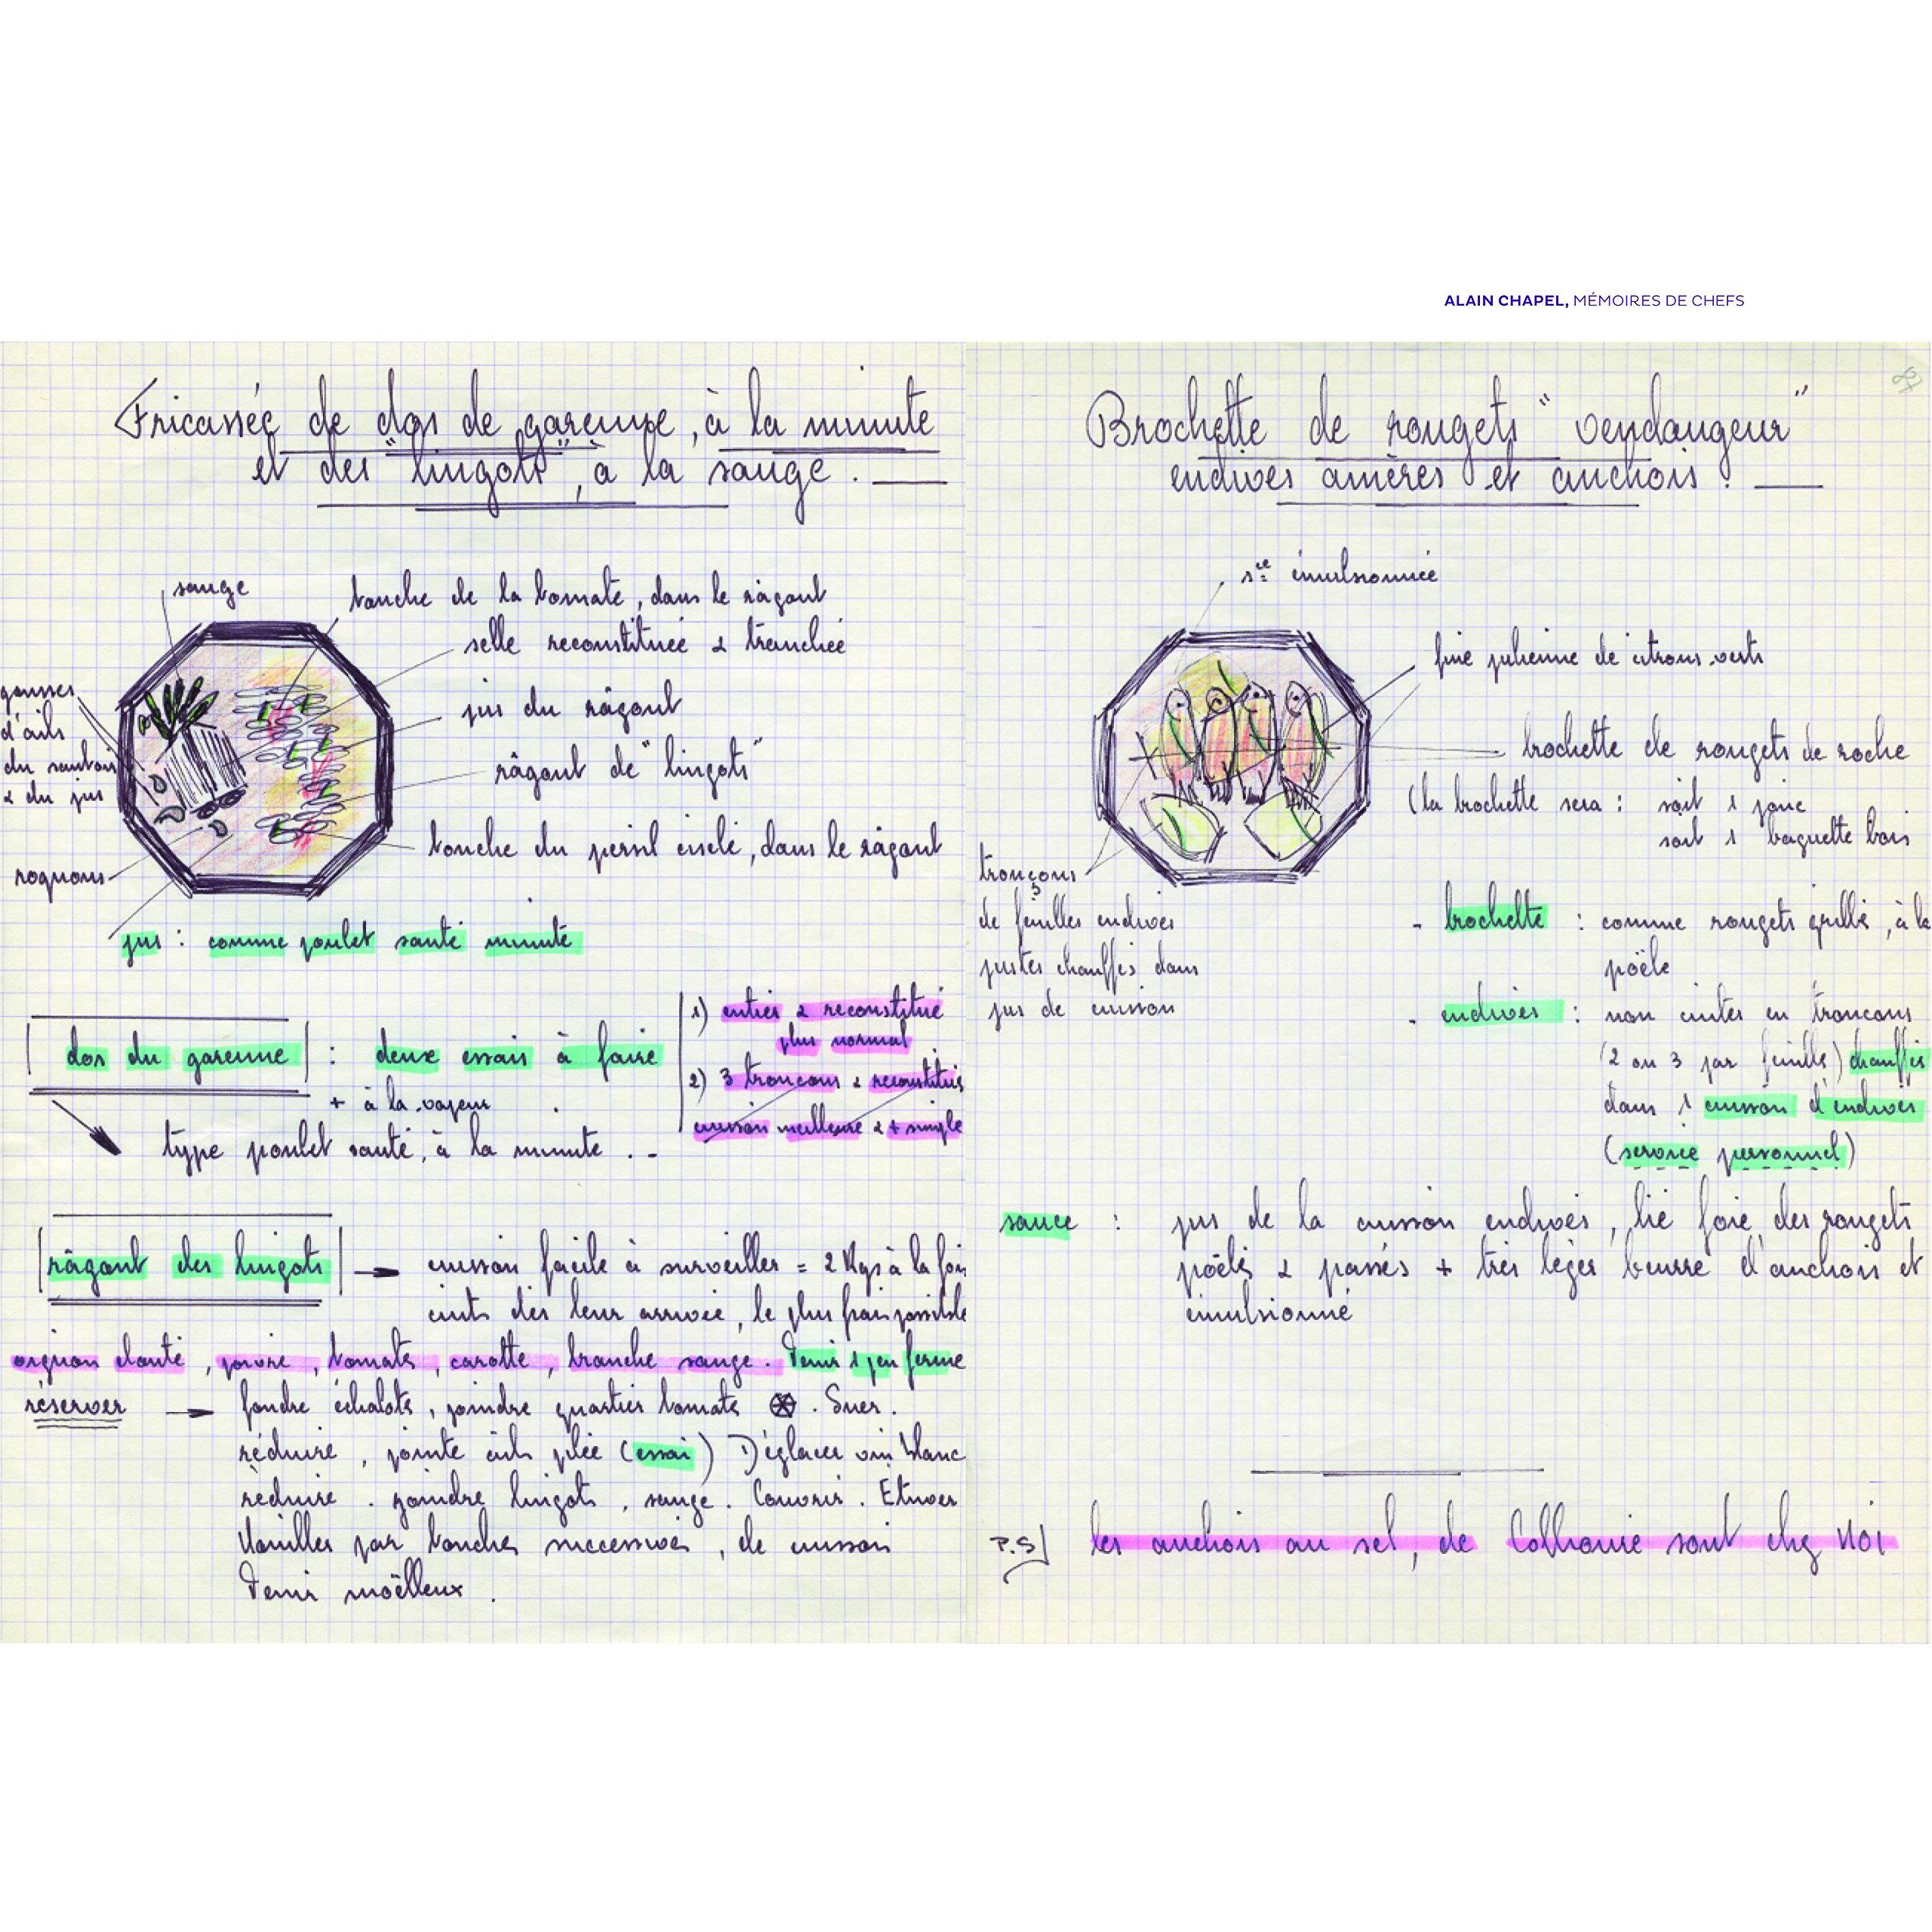 ALAIN CHAPEL, MÉMOIRES DE CHEFS
Fricassée de dos de garenne, à la minute
et des "lingots", à la sauge.
sauge
touche de la tomate, dans le râgout
selle reconstituée & tranchée
gousses
d'ails
du sautoir
& du jus
jus du râgout
râgout de "lingots"
touche du persil ciselé, dans le râgout
rognons
jus : comme poulet sauté minute
dos du garenne : deux essais à faire
+ à la vapeur
1) entier & reconstitué
plus normal
2) 3 troncons & reconstitués
cuisson meilleure & + simple
type poulet sauté, à la minute . -
râgout des lingots → cuisson facile à surveiller = 2 Kgs à la fois
cuits dès leur arrivée, le plus frais possible
oignon clouté, poivre, tomate, carotte, branche sauge. Tenir 1 peu ferme
réserver → fondre échalote, joindre quartier tomate . Suer.
réduire, pointe ail pilée (essai) Déglacer vin blanc
réduire. joindre lingots, sauge. Couvrir. Etuver
Mouiller par touches successives, de cuisson
Tenir moëlleux.
Brochette de rougets "vendangeur"
endives amères et anchois.
sce émulsionnée
fine julienne de citrons verts
brochette de rougets de roche
(la brochette sera : soit 1 jonc
soit 1 baguette bois
tronçons
de feuilles endives
justes chauffés dans
jus de cuisson
- brochette : comme rougets grillé, à la
poële
- endives : non cuites en troncons
(2 ou 3 par feuille) chauffés
dans 1 cuisson d'endives
(service personnel)
sauce : jus de la cuisson endives, lié foie des rougets
poëlés & passés + très léger beurre d'anchois et
émulsionné
P.S/ les anchois au sel, de Collioure sont chez NOI